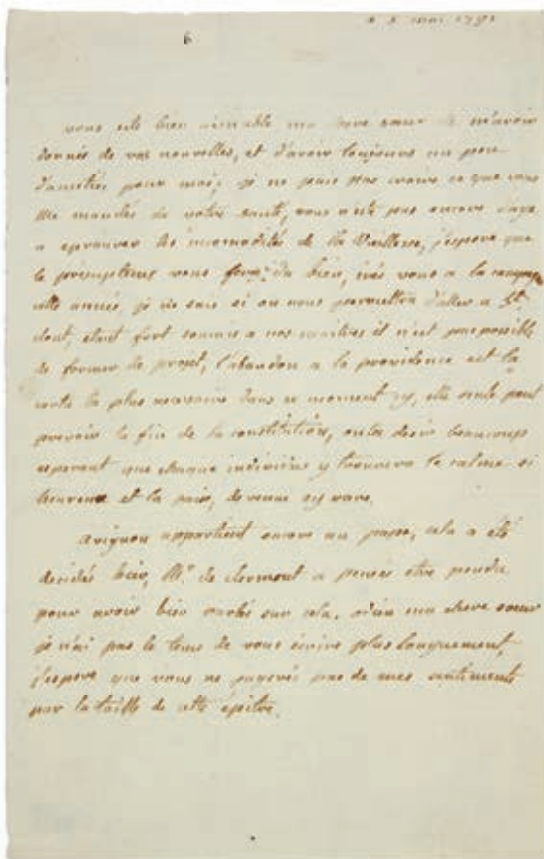 a 5 mai 1791
6
vous este bien aimable ma chere sœur de m'avoir
donnés de vos nouvelles, et d'avoir toujours un peu
d'amitiés pour moi; je ne puis pas croire ce que vous
me mandés de votre santé, vous n'este pas encore d'age
a eprouver les incomodités de la Vieillesse, j'espere que
le présingtems vous fera du bien, irés vous a la campagne
cette année, je ne sais si on nous permettra d'aller a St
clout, etant fort soumis a nos maitres il n'est pas possible
de former de projet, l'abandon a la providence est la
vertu la plus necessaire dans ce moment cy, elle seule peut
prevoir la fin de la constitution, on la desir beaucoups
esperant que chaque individus y trouvera le calme si
heureux et la paix, devenue cy rare.
avignon appartient encore au pape, cela a été
decidés hier, Mr. de clermont a pensés etre pendu
pour avoir bien parlés sur cela. adieu ma chere sœur
je n'ai pas le tems de vous écrire plus longuement,
j'espere que vous ne jugerés pas de mes sentiments
par la taille de cette épitre.